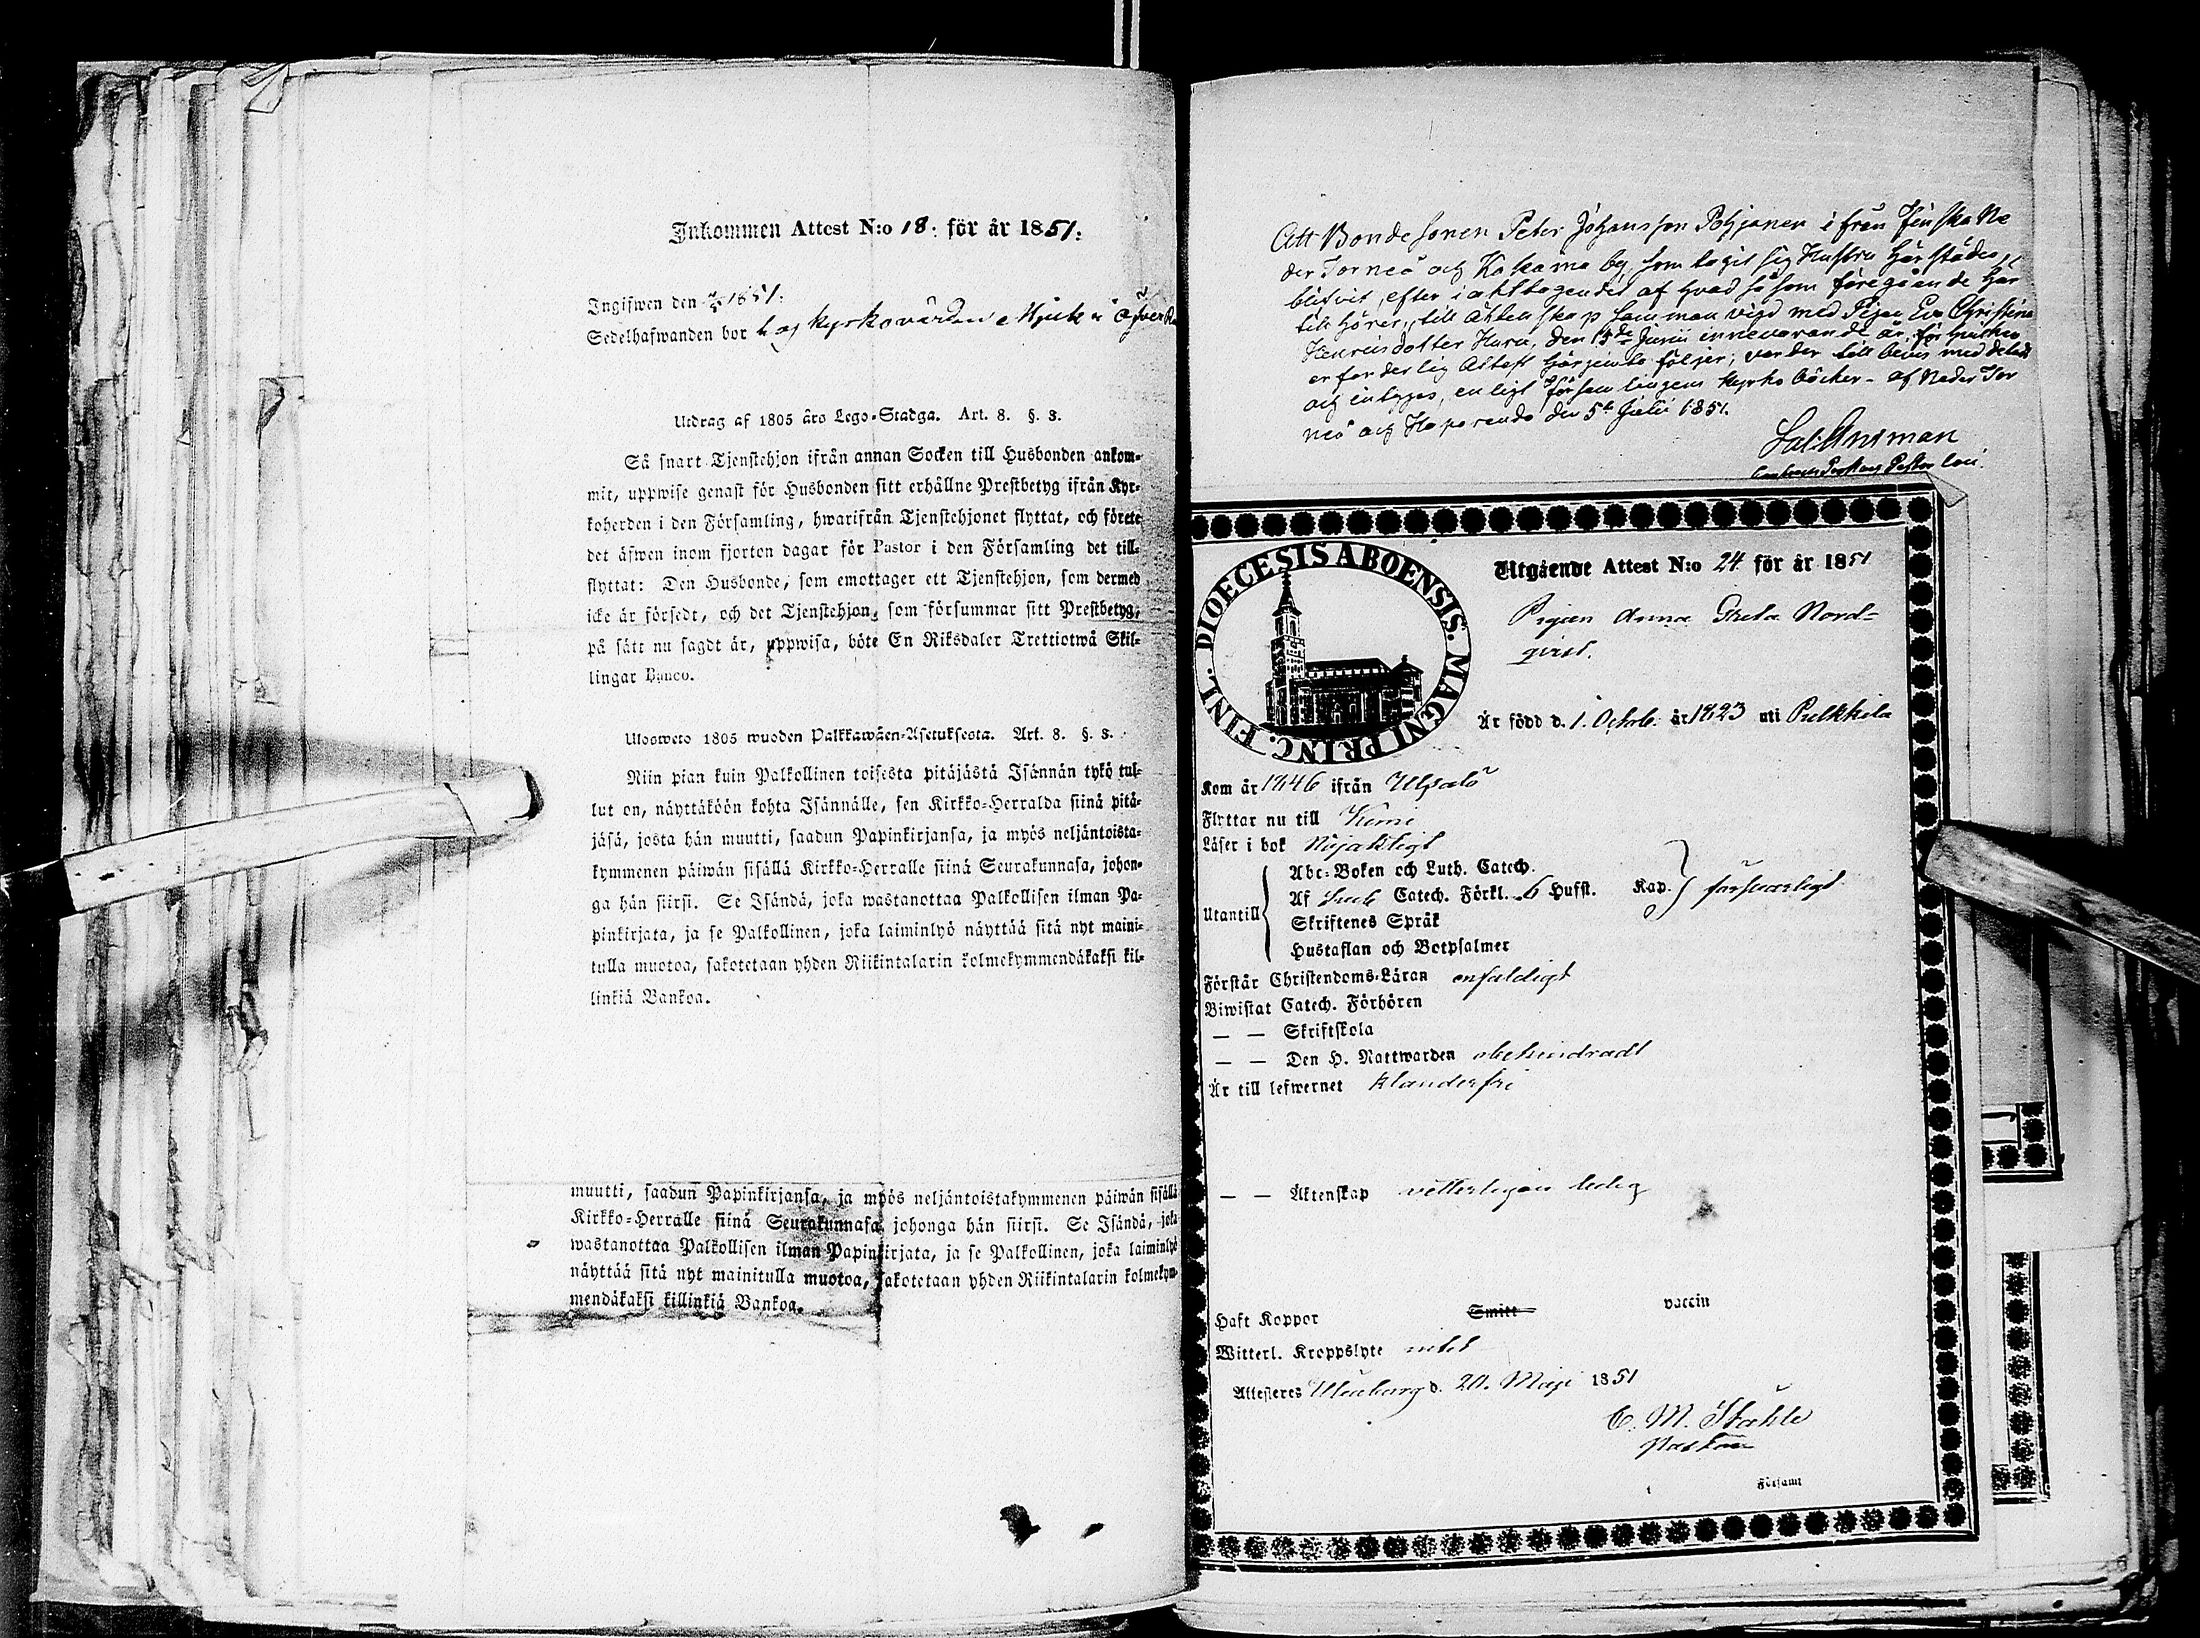 Inkommen Attest N:o 18. för år 1851.
Ingifwen den 1851.
Sedelhafwanden bor hos kyrkovärden Mjuk i öfver
Utdrag af 1805 års Lego-Stadga. Art. 8. §. 3.
Så snart Tjenstehjon ifrån annan Socken till Husbonden ankom-
mit, uppwise genast för Husbonden sitt erhållne Prestbetyg ifrån Kyr-
koherden i den Församling, hwarifrån Tjenstehjonet flyttat, och förete
det äfwen inom fjorton dagar för Pastor i den Församling det till-
flyttat: Den Husbonde, som emottager ett Tjenstehjon, som dermed
icke är försedt, och det Tjenstehjon, som försummar sitt Prestbetyg,
på sätt nu sagdt är, uppwisa, böte En Riksdaler Trettiotwå Skil-
lingar Banco.
Ulosweto 1805 wuoden Palkkawäen-Asetuksesta. Art. 8. §. 3.
Niin pian kuin Palkollinen toisesta pitäjästä Isännän tykö tul-
lut on, näyttäköön kohta Isännälle, sen Kirkko-Herralda siinä pitä-
jäsä, josta hän muutti, saadun Papinkirjansa, ja myös neljäntoista-
kymmenen päiwän sisällä Kirkko-Herralle siinä Seurakunnasa, johon-
ga hän siirsi. Se Isändä, joka wastanottaa Palkollisen ilman Pa-
pinkirjata, ja se Palkollinen, joka laiminlyö näyttää sitä nyt maini-
tulla muotoa, sakotetaan yhden Riikintalarin kolmekymmendäkaksi kil-
linkiä Bankoa.
muutti, saadun Papinkirjansa, ja myös neljäntoistakymmenen päiwän sisällä
Kirkko-Herralle siinä Seurakunnasa johonga hän siirsi. Se Isändä, joka
wastanottaa Palkollisen ilman Papinkirjata, ja se Palkollinen, joka laiminlyö
näyttää sitä nyt mainitulla muotoa, sakotetaan yhden Riikintalarin kolmekym-
mendäkaksi killinkiä Bankoa.
Att Bondesonen Peter Johansson Pohjanen ifrån Finska Ne
der Torneå och Kakama by, som tagit sig Hustru härstädes,
blifvit, efter iakttagendet af hvad såsom föregående här
till hörer, till Äktenskap samman vigd med Pigan Eva Christina
Henriksdotter Hura, den 15de Junii innevarande år, för hvilken
erforderlig Attest härjemte följer; varder till bevis meddeladt
och intygas, enligt Församlingens Kyrko böcker - af Neder Tor
neå och Haparanda den 5te Julii 1851.
Sal. Ansman
Pastor
DIOECESIS ABOENSIS. MAGNI PRINC. FINL.
Utgående Attest N:o 24 för år 1851
Pigan Anna Greta Nord-
qvist.
Är född d. 1. Octob. år 1823 uti Pulkkila
Kom år 1846 ifrån Uhleå
Flyttar nu till Kemi
Läser i bok Nöjaktigt
Utantill Abc-Boken och Luth. Catech.
Af Sveb Catech. Förkl. 6 Hufst. Kap. försvarligt
Skriftenes Språk
Hustaflan och Botpsalmer
Förstår Christendoms-Läran enfaldigt
Biwistat Catech. Förhören
— — Skriftskola
— — Den H. Nattwarden obehindradt
Är till lefwernet klanderfri
— — Äktenskap vetterligen ledig
Haft Koppor Smitt vaccin
Witterl. Kroppslyte intet
Attesteras Uleåborg d. 20. Maji 1851
C. M. Ståhle
Pastor
Församl